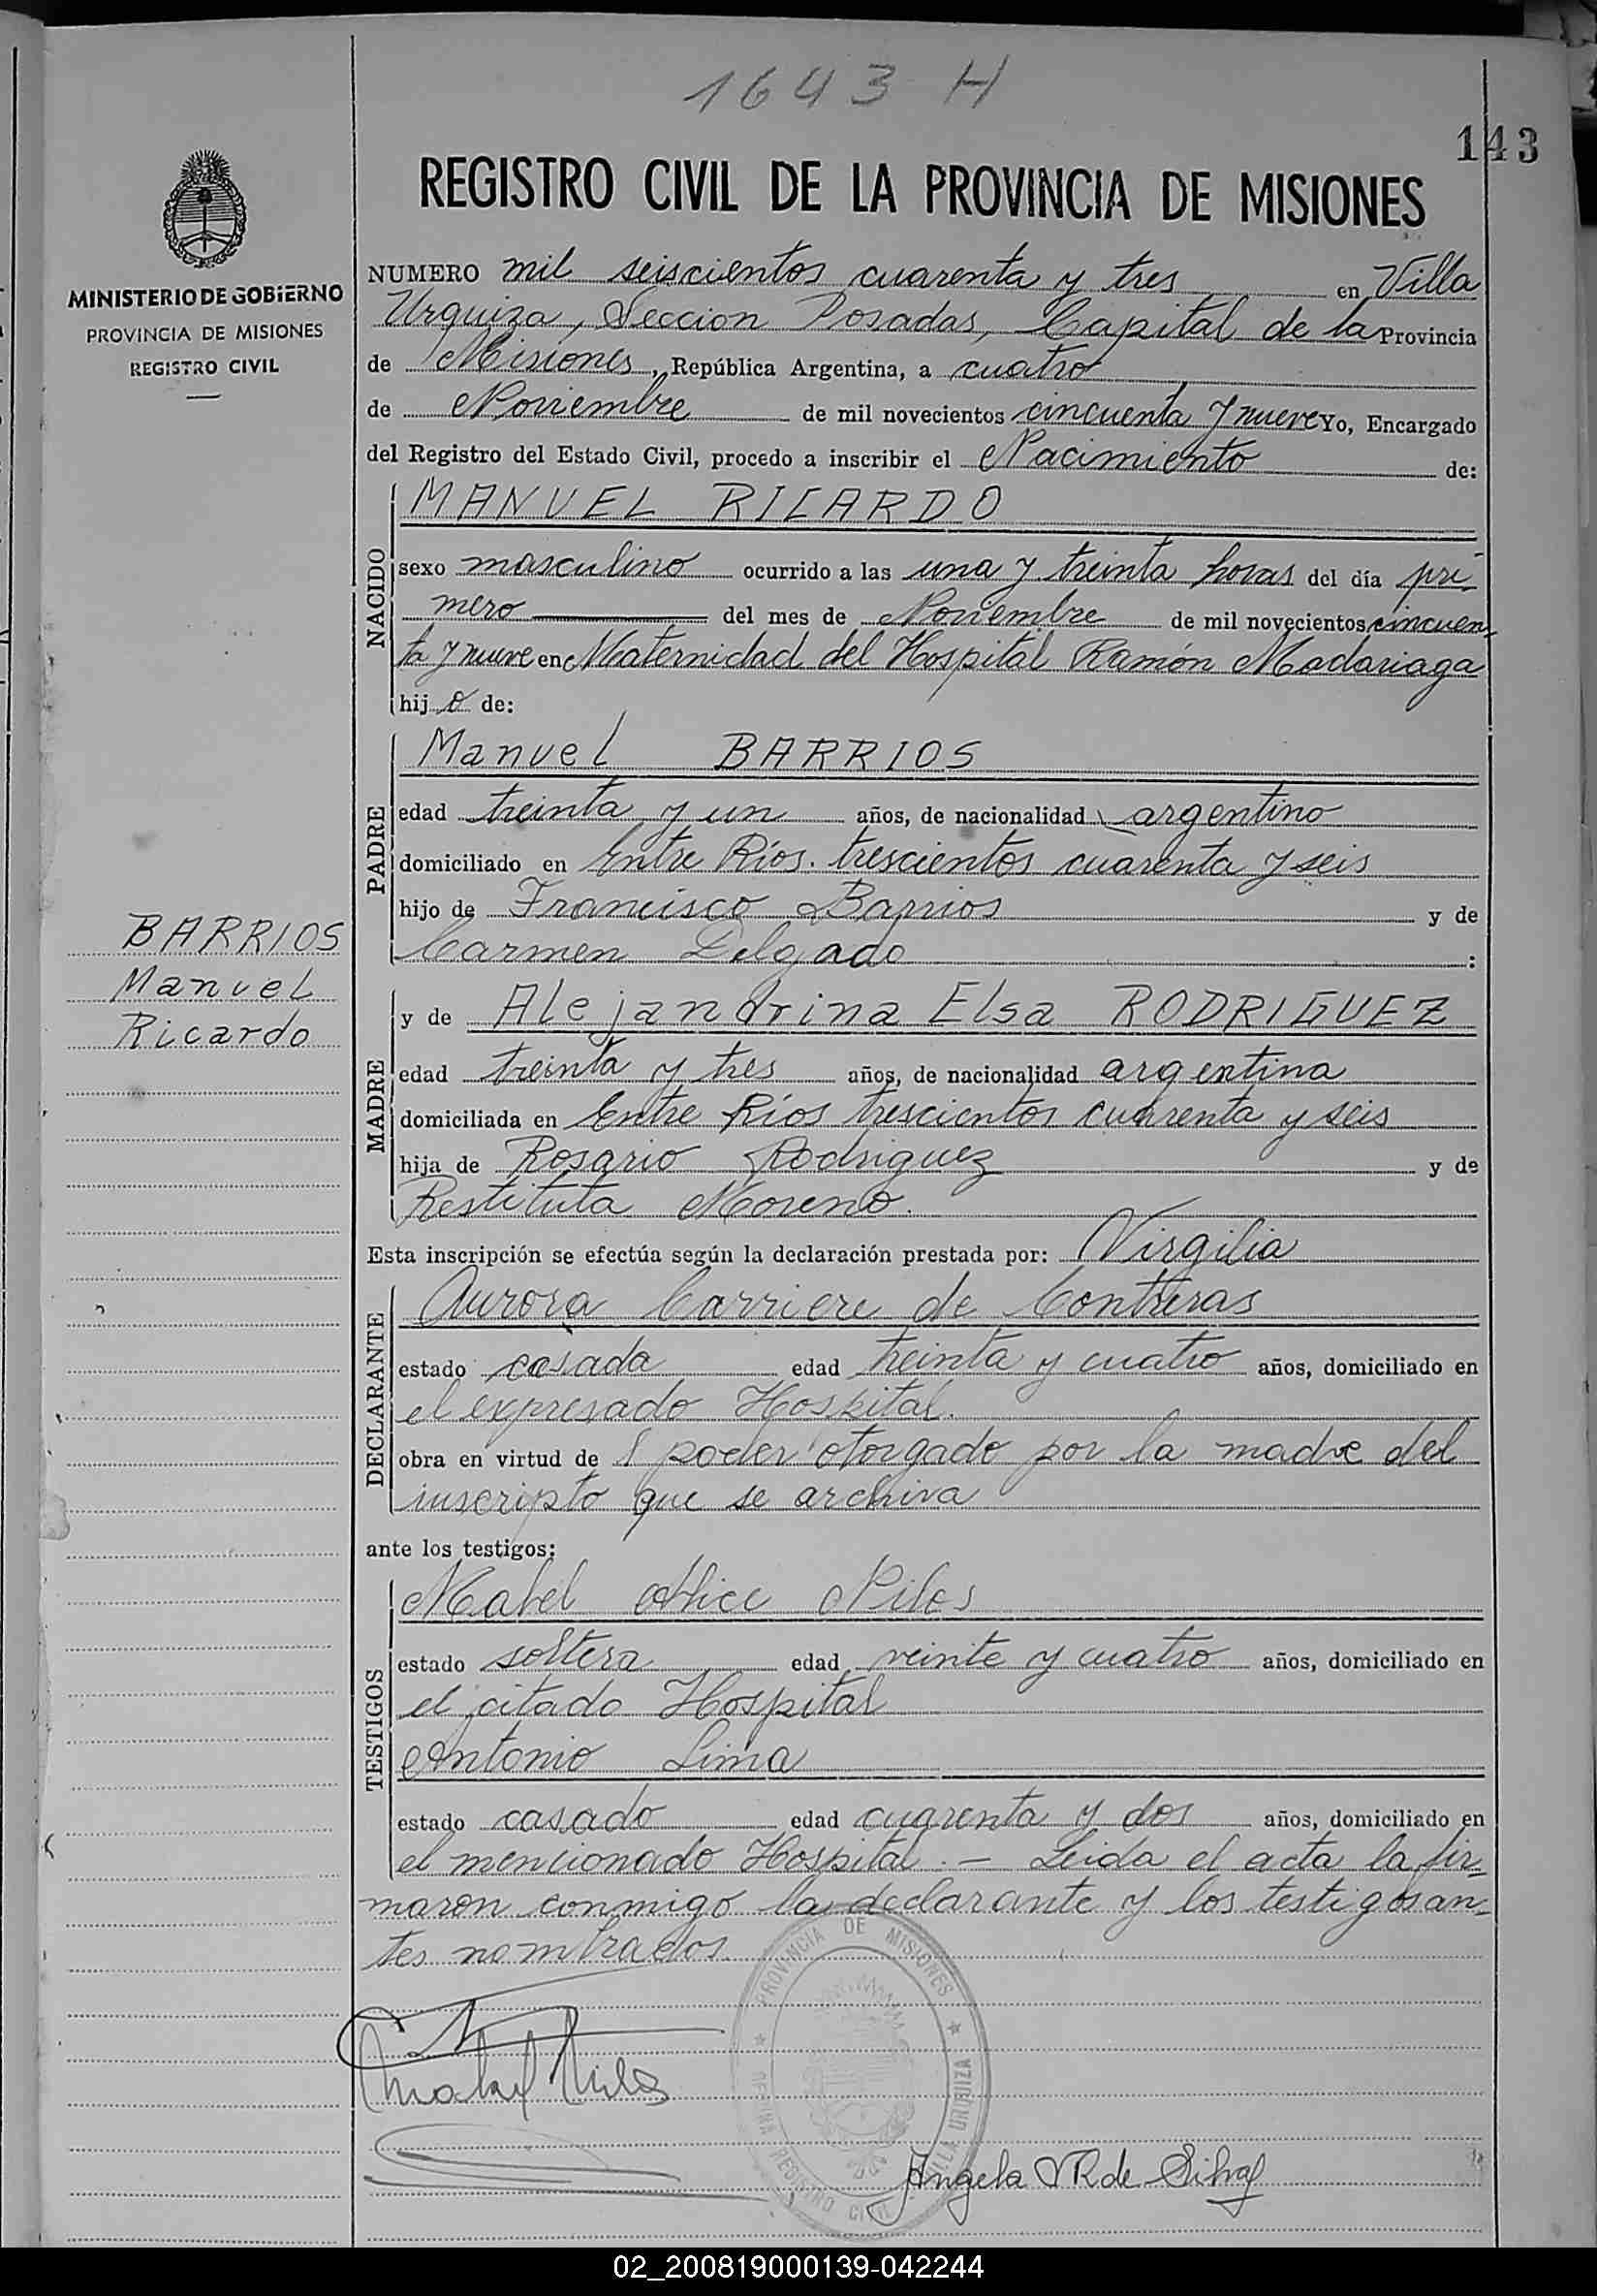 1643 H
143
REGISTRO CIVIL DE LA PROVINCIA DE MISIONES
MINISTERIO DE GOBIERNO
PROVINCIA DE MISIONES
REGISTRO CIVIL
NUMERO mil seiscientos cuarenta y tres en Villa
Urquiza, Seccion Posadas, Capital de la Provincia
de Misiones, República Argentina, a cuatro
de Noviembre de mil novecientos cincuenta y nueve Yo, Encargado
del Registro del Estado Civil, procedo a inscribir el Nacimiento de:
NACIDO
MANUEL RICARDO
sexo masculino ocurrido a las una y treinta horas del día pri-
mero del mes de Noviembre de mil novecientos cincuen-
ta y nueve en Maternidad del Hospital Ramón Madariaga
hijo de:
PADRE
Manuel BARRIOS
edad treinta y un años, de nacionalidad argentino
domiciliado en Entre Ríos. trescientos cuarenta y seis
hijo de Francisco Barrios y de
Carmen Delgado :
BARRIOS
Manuel
Ricardo
MADRE
y de Alejandrina Elsa RODRIGUEZ
edad treinta y tres años, de nacionalidad argentina
domiciliada en Entre Ríos trescientos cuarenta y seis
hija de Rosario Rodriguez y de
Restituta Moreno.
Esta inscripción se efectúa según la declaración prestada por: Virgilia
DECLARANTE
Aurora Carriere de Contreras
estado casada edad treinta y cuatro años, domiciliado en
el expresado Hospital.
obra en virtud de poder otorgado por la madre del
inscripto que se archiva
ante los testigos:
TESTIGOS
Mabel Alice Niles
estado soltera edad veinte y cuatro años, domiciliado en
el citado Hospital
Antonio Lima
estado casado edad cuarenta y dos años, domiciliado en
el mencionado Hospital. – Leida el acta la fir-
maron conmigo la declarante y los testigos an-
tes nombrados.
PROVINCIA DE MISIONES
OFICINA REGISTRO CIVIL VILLA URQUIZA
Mabel Niles
Angela R de Silva
02_200819000139-042244